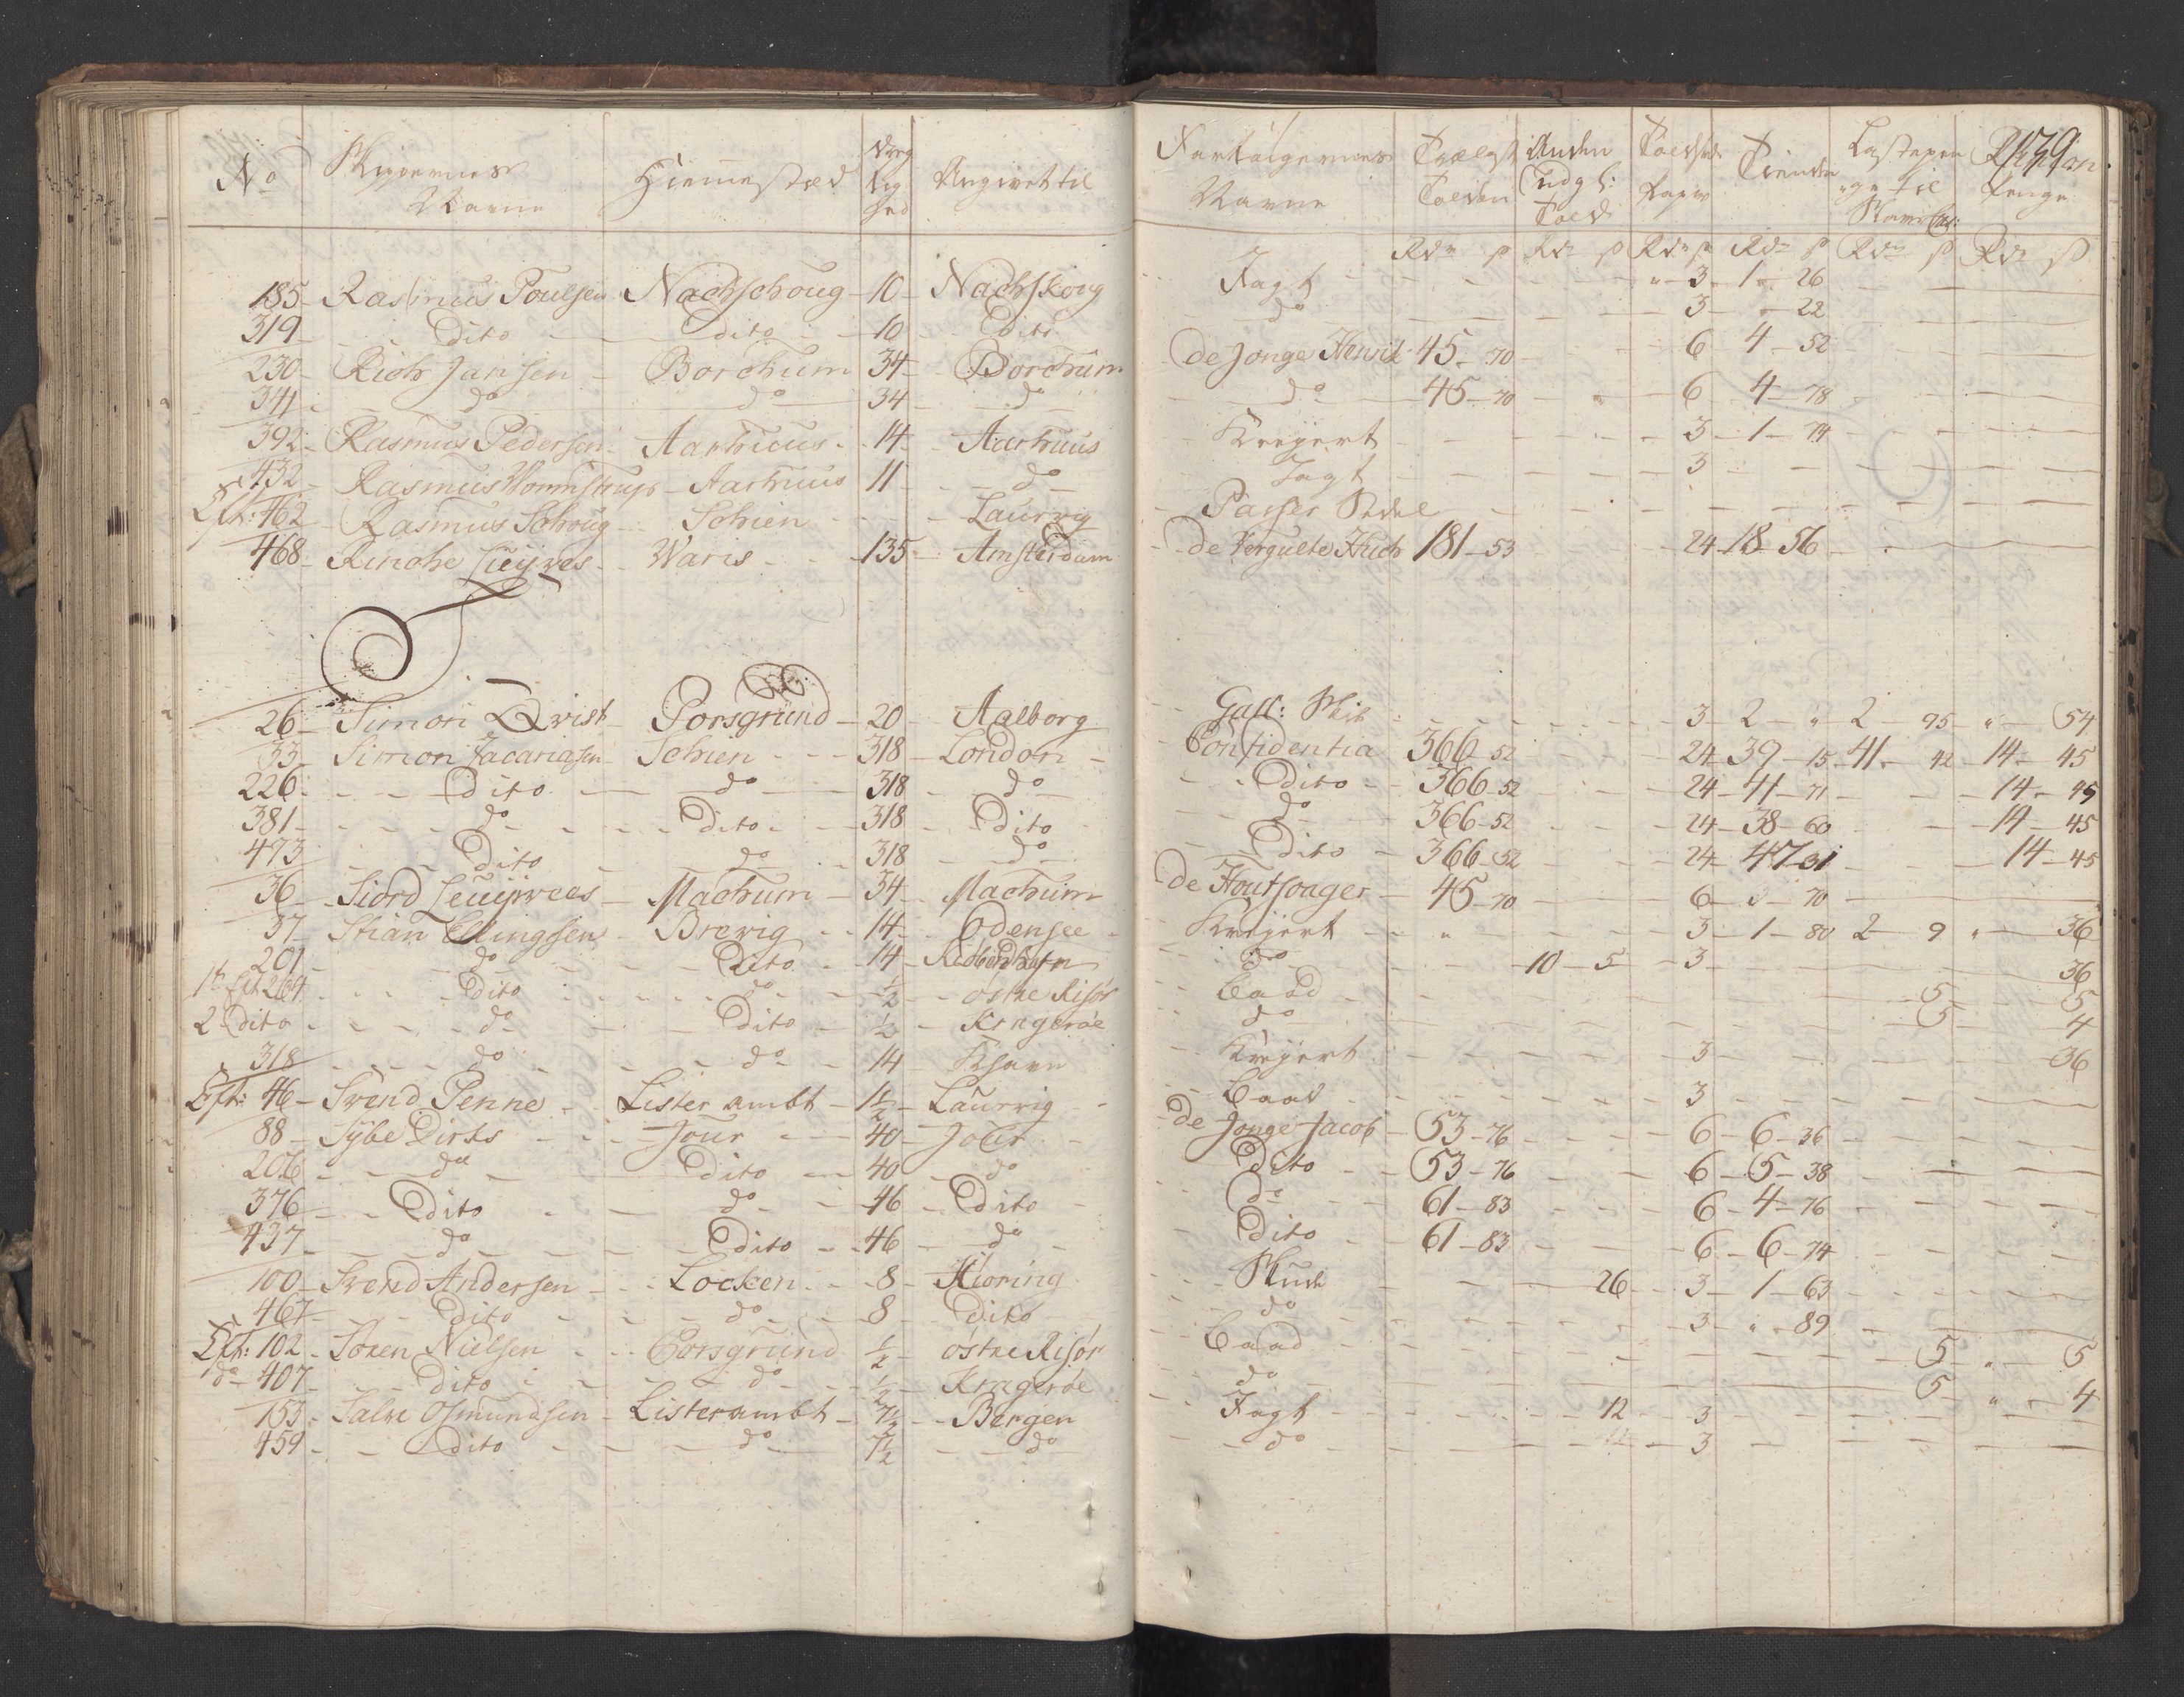 No | Skipernes Navne | Hiemmestæd | Dræg tig hed | Angivet til | Fartøigernes Navne | Trælast Tolden | Anden Udg: Told | Told | Tienden | Lastepen
Rdr ß | Rdr ß | Rdr ß | Rdr ß | Rdr ß | Rdr ß
185 – Rasmus Poulsen – Nachschoug – 10 – Nachskoug – Jagt – 3 – 1 – 26
319 – Dito – dito – 10 – Dito – do – 3 – 22
230 – Rich Jansen – Borchum – 34 – Borchum – De Jonge – 45 – 70 – 6 – 4 – 52
341 – do – do – 34 – do – do – 45 – 70 – 6 – 4 – 78
392 – Rasmus Pedersen – Aarhuus – 14 – Aarhuus – Kreyert – 3 – 1 – 74
432 – Rasmus – Aarhuus – 11 – do – Jagt – 3
Eft: 462 – Rasmus Schoug – Schien – Laurvig – Passer Sedel
468 – Rinche – Waris – 135 – Amsterdam – De Vergulte – 181 – 53 – 24 – 18 – 56
S
26 – Simon Qvist – Porsgrund – 20 – Aalborg – Gall: Skib – 3 – 2 – " – 2 – 95 – " – 54
33 – Simon Zacariasen – Schien – 318 – London – Confidentia – 366 – 52 – 24 – 39 – 15 – 41 – 42 – 14 – 45
226 – Dito – do – 318 – do – Dito – 366 – 52 – 24 – 41 – 71 – 14 – 45
381 – do – Dito – 318 – Dito – do – 366 – 52 – 24 – 38 – 60 – 14 – 45
473 – Dito – do – 318 – do – Dito – 366 – 52 – 24 – 47 – 31 – 14 – 45
36 – Siord – Machum – 34 – Machum – De Houtsaager – 45 – 70 – 6 – 3 – 70
37 – Stian Ellingsen – Brevig – 14 – Odensee – Kreyert – " – 3 – 1 – 80 – 2 – 9 – " – 36
201 – do – Dito – 14 – do – 10 – 5 – 3 – 36
1te Eft 264 – Dito – do – ½ – østre Risør – Baad – 5 – 5
2 dito – do – Dito – ½ – Kragerøe – do – 5 – 4
318 – do – do – 14 – Khavn – Kreyert – 3 – 36
Eft: 46 – Svend Penne – Lister ambt – 1½ – Laurvig – Baad – 3
88 – Sybe Dirks – Jour – 40 – Jour – De Jonge Jacob – 53 – 76 – 6 – 6 – 36
206 – do – Dito – 40 – do – Dito – 53 – 76 – 6 – 5 – 38
376 – Dito – do – 46 – Dito – do – 61 – 83 – 6 – 4 – 76
437 – do – Dito – 46 – do – Dito – 61 – 83 – 6 – 6 – 74
100 – Svend Andersen – Locken – 8 – Hiøring – Skude – 26 – 3 – 1 – 63
467 – Dito – do – 8 – dito – do – 3 – " – 89
Eft: 102 – Søren Nielsen – Porsgrund – ½ – østre Risør – Baad – 5 – " – 5
do 407 – Dito – do – ½ – Kragerøe – do – 5 – " – 4
153 – Salve Osmundsen – Lister ambt – 7½ – Bergen – Jagt – 12 – 3
459 – Dito – do – 7½ – do – do – 12 – 3